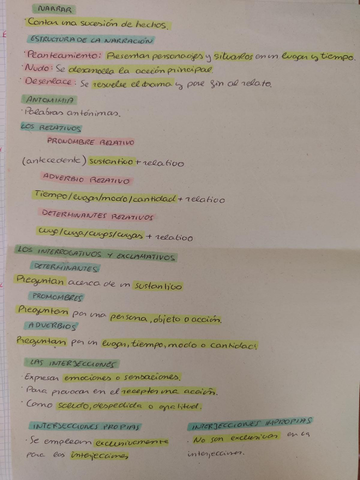 NARRAR
· Contar una sucesión de hechos.
ESTRUCTURA DE LA NARRACIÓN
· Planteamiento: Presentan personajes y situarlos en un lugar y tiempo.
· Nudo: Se desarrolla la acción principal
· Desenlace: Se resuelve el drama y pone fin al relato.
ANTONIMIA
· Palabras antónimas.
LOS RELATIVOS
PRONOMBRE RELATIVO
(antecedente) sustantivo + relativo
ADVERBIO RELATIVO
Tiempo/lugar/modo/cantidad + relativo
DETERMINANTES RELATIVOS
cuyo/cuya/cuyos/cuyas + relativo
LOS INTERROGATIVOS Y EXCLAMATIVOS
DETERMINANTES
Preguntan acerca de un sustantivo
PRONOMBRES
Preguntan por una persona, objeto o acción.
ADVERBIOS
Preguntan por un lugar, tiempo, modo o cantidad.
LAS INTERJECCIONES
· Expresan emociones o sensaciones.
· Para provocar en el receptor una acción.
· Como saludo, despedida o
INTERJECCIONES PROPIAS
· Se emplean exclusivamente
para las interjecciones
INTERJECCIONES IMPROPIAS
· No son exclusivas
interjecciones.